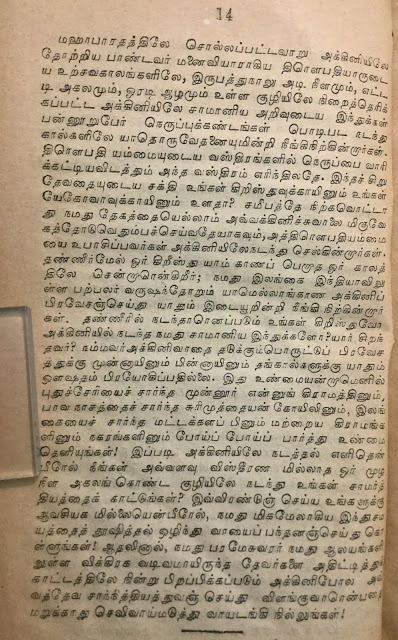 14
மஹாபாரதத்திலே சொல்லப்பட்டவாறு அக்கினியிலே
தோற்றிய பாண்டவர் மனைவியாராகிய திரௌபதியாருடை
ய உற்சவகாலங்களிலே, இருபத்துநாலு அடி நீளமும், எட்ட
டி அகலமும், ஓரடி ஆழமும் உள்ள குழியிலே நிறைத்தெரிக்
கப்பட்ட அக்கினியிலே சாமானிய அறிவுடைய இந்துக்கள்
பன்னூறுபேர் நெருப்புக்கண்டங்கள் பொடிபட நடந்து
கால்களிலே யாதொருவேதனையுமின்றி நீங்கிநிற்கின்றார்கள்.
திரௌபதி யம்மையுடைய வஸ்திரங்களில் நெருப்பை வாரி
க்கட்டியவிடத்தும் அந்த வஸ்திரம் எரிந்திலதே. இந்தச் சிறு
தேவதையுடைய சக்தி உங்கள் கிறிஸ்துவுக்காயினும் உங்கள்
யேகோவாவுக்காயினும் உளதா? சமீபத்தே நிற்கவொட்டா
து நமது தேகத்தையெல்லாம் அவ்வக்கினிச்சுவாலை மிகுவே
கத்தோடுவெதும்பச்செய்வதேயாகவும், அத்திரௌபதியம்மை
யை உபாசிப்பவர்கள் அக்கினியிலேநடந்து செல்கின்றார்கள்.
தண்ணீர்மேல் ஓர் கிறீஸ்து யாம் காணப் பெறாத ஓர் காலத்
திலே சென்றாரென்கிறீர்; நமது இலங்கை இந்தியாவிலு
ள்ள பற்பலர் வருஷந்தோறும் யாமெல்லாங்காண அக்கினிப்
பிரவேசஞ்செய்து யாதும் இடையூறின்றி நீங்கி நிற்கின்றார்
கள். தண்ணீரில் நடந்தாரெனப்படும் உங்கள் கிறிஸ்துவோ
அக்கினியில் நடந்த நமது சாமானிய இந்துக்களோ? யார் சிறந்
தவர்? நம்மவர் அக்கினிவாதை தடுக்கும்பொருட்டுப் பிரவேச
த்துக்கு முன்னாயினும் பின்னாயினும் தங்கால்களுக்கு யாதும்
ஔஷதம் பிரயோகிப்பதில்லை. இது உண்மையன்றாமெனில்
புதுச்சேரியைச் சார்ந்த முன்னூர் என்னுங் கிராமத்தினும்,
பாவநாசத்தைச் சார்ந்த சுரிமுத்தையன் கோயிலினும், இலங்
கையைச் சார்ந்த மட்டக்களப்பினும் மற்றைய கிராமங்க
ளினும் நகரங்களினும் போய்ப் போய்ப் பார்த்து உண்மை
தெளியுங்கள்! இப்படி அக்கினியிலே நடத்தல் எளிதென்
பீரேல் நீங்கள் அவ்வளவு விஸ்தீரண மில்லாத ஓர் முழ
நீள அகலங் கொண்ட குழியிலே நடந்து உங்கள் சாமர்த்
தியத்தைக் காட்டுங்கள்? இவ்விரண்டுஞ் செய்ய உங்களுக்கு
அவகியக மில்லையென்பீரேல், நமது மிகமேலாகிய இந்துசம
யத்தைத் தூஷித்தல் ஒழிந்து வாயைப் பந்தனஞ்செய்து கொ
ள்ளுங்கள்! ஆதலினால், நமது பரமேசுவரர் நமது ஆலயங்களி
லுள்ள விக்கிரக வடிவமாயிருந்த தேவர்களை அதிட்டித்துக்
காட்டத்திலே நின்று பிறப்பிக்கப்படும் அக்கினிபோல அவ்
வத்தேவ சாந்நித்தியத்துவஞ் செய்து விளங்குவாரென்பதை
மறுக்காது செவிவாய்மடுத்து வாயடங்கி நில்லுங்கள்!